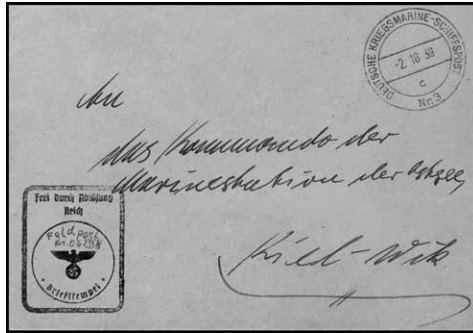 DEUTSCHE KRIEGSMARINE-SCHIFFSPOST
-2.10.39
c
Nr.3
An
das Kommando der
Marinestation der Ostsee,
Kiel-Wik
Frei durch Ablösung
Reich
Feldpost
Nr.
Briefstempel